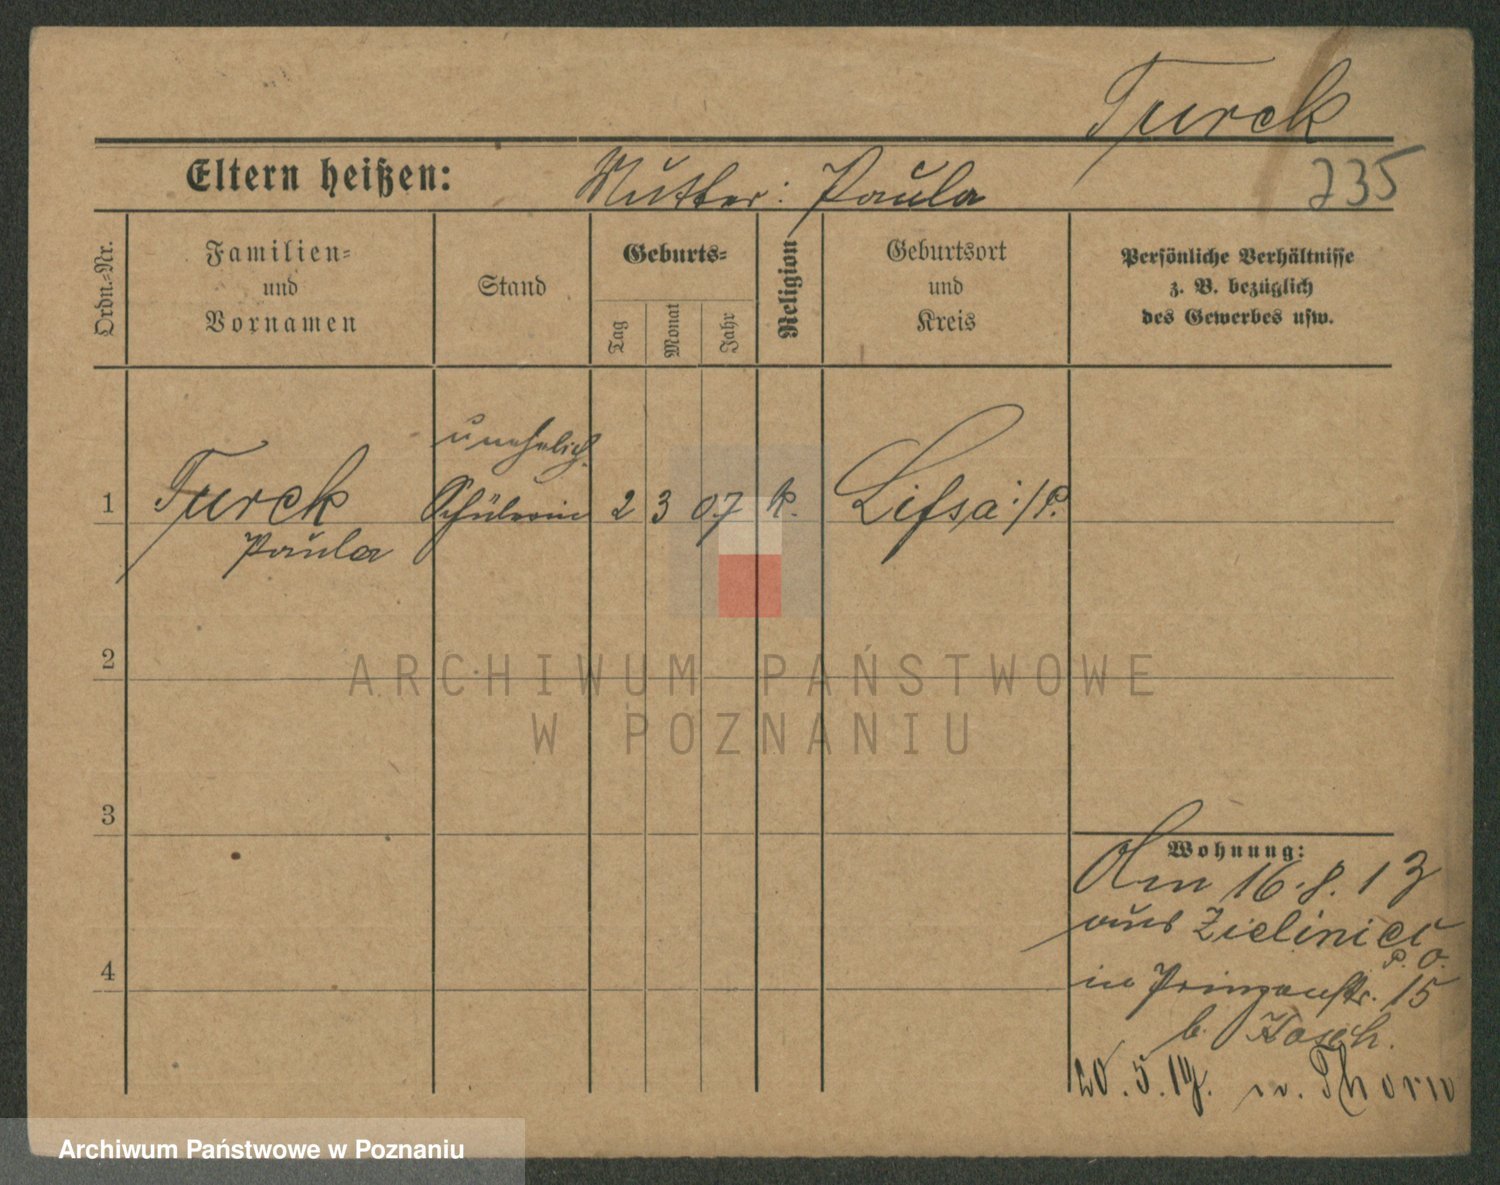 Turck
Eltern heißen: Mutter: Paula
235
Ordn.-Nr.
Familien-
und
Vornamen
Stand
Geburts-
Tag
Monat
Jahr
Religion
Geburtsort
und
Kreis
Persönliche Verhältnisse
z. B. bezüglich
des Gewerbes usw.
unehelich.
1 Turck Schülerin 2 3 07 k. Lissa i/P.
Paula
2
ARCHIWUM PAŃSTWOWE
W POZNANIU
3
Wohnung:
Am 16.8.13
aus Zieliniec
P. O.
4
in Prinzenstr. 15
b.
20.5.19. n. Thorn
Archiwum Państwowe w Poznaniu